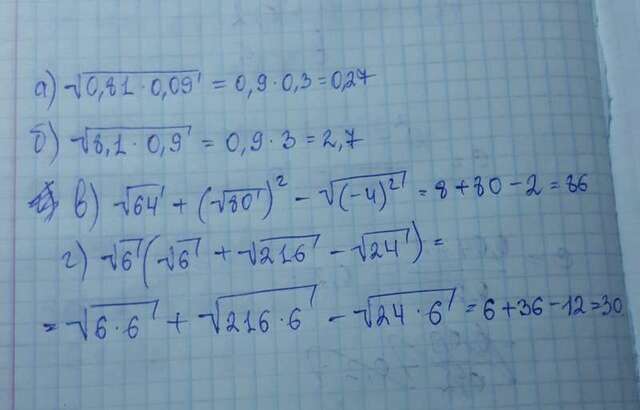 а) √0,81·0,09 = 0,9·0,3=0,27
б) √8,1·0,9 = 0,9·3=2,7
в) √64 + (√80)² - √(-4)² = 8+80-2=86
г) √6(√6 + √216 - √24) =
= √6·6 + √216·6 - √24·6 = 6+36-12=30